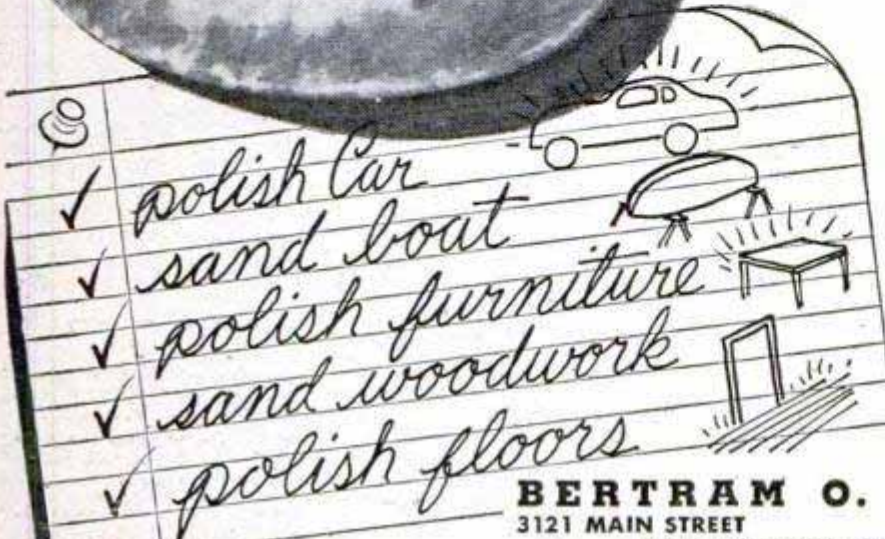 ✓ polish Car
✓ sand boat
✓ polish furniture
✓ sand woodwork
✓ polish floors
BERTRAM O.
3121 MAIN STREET